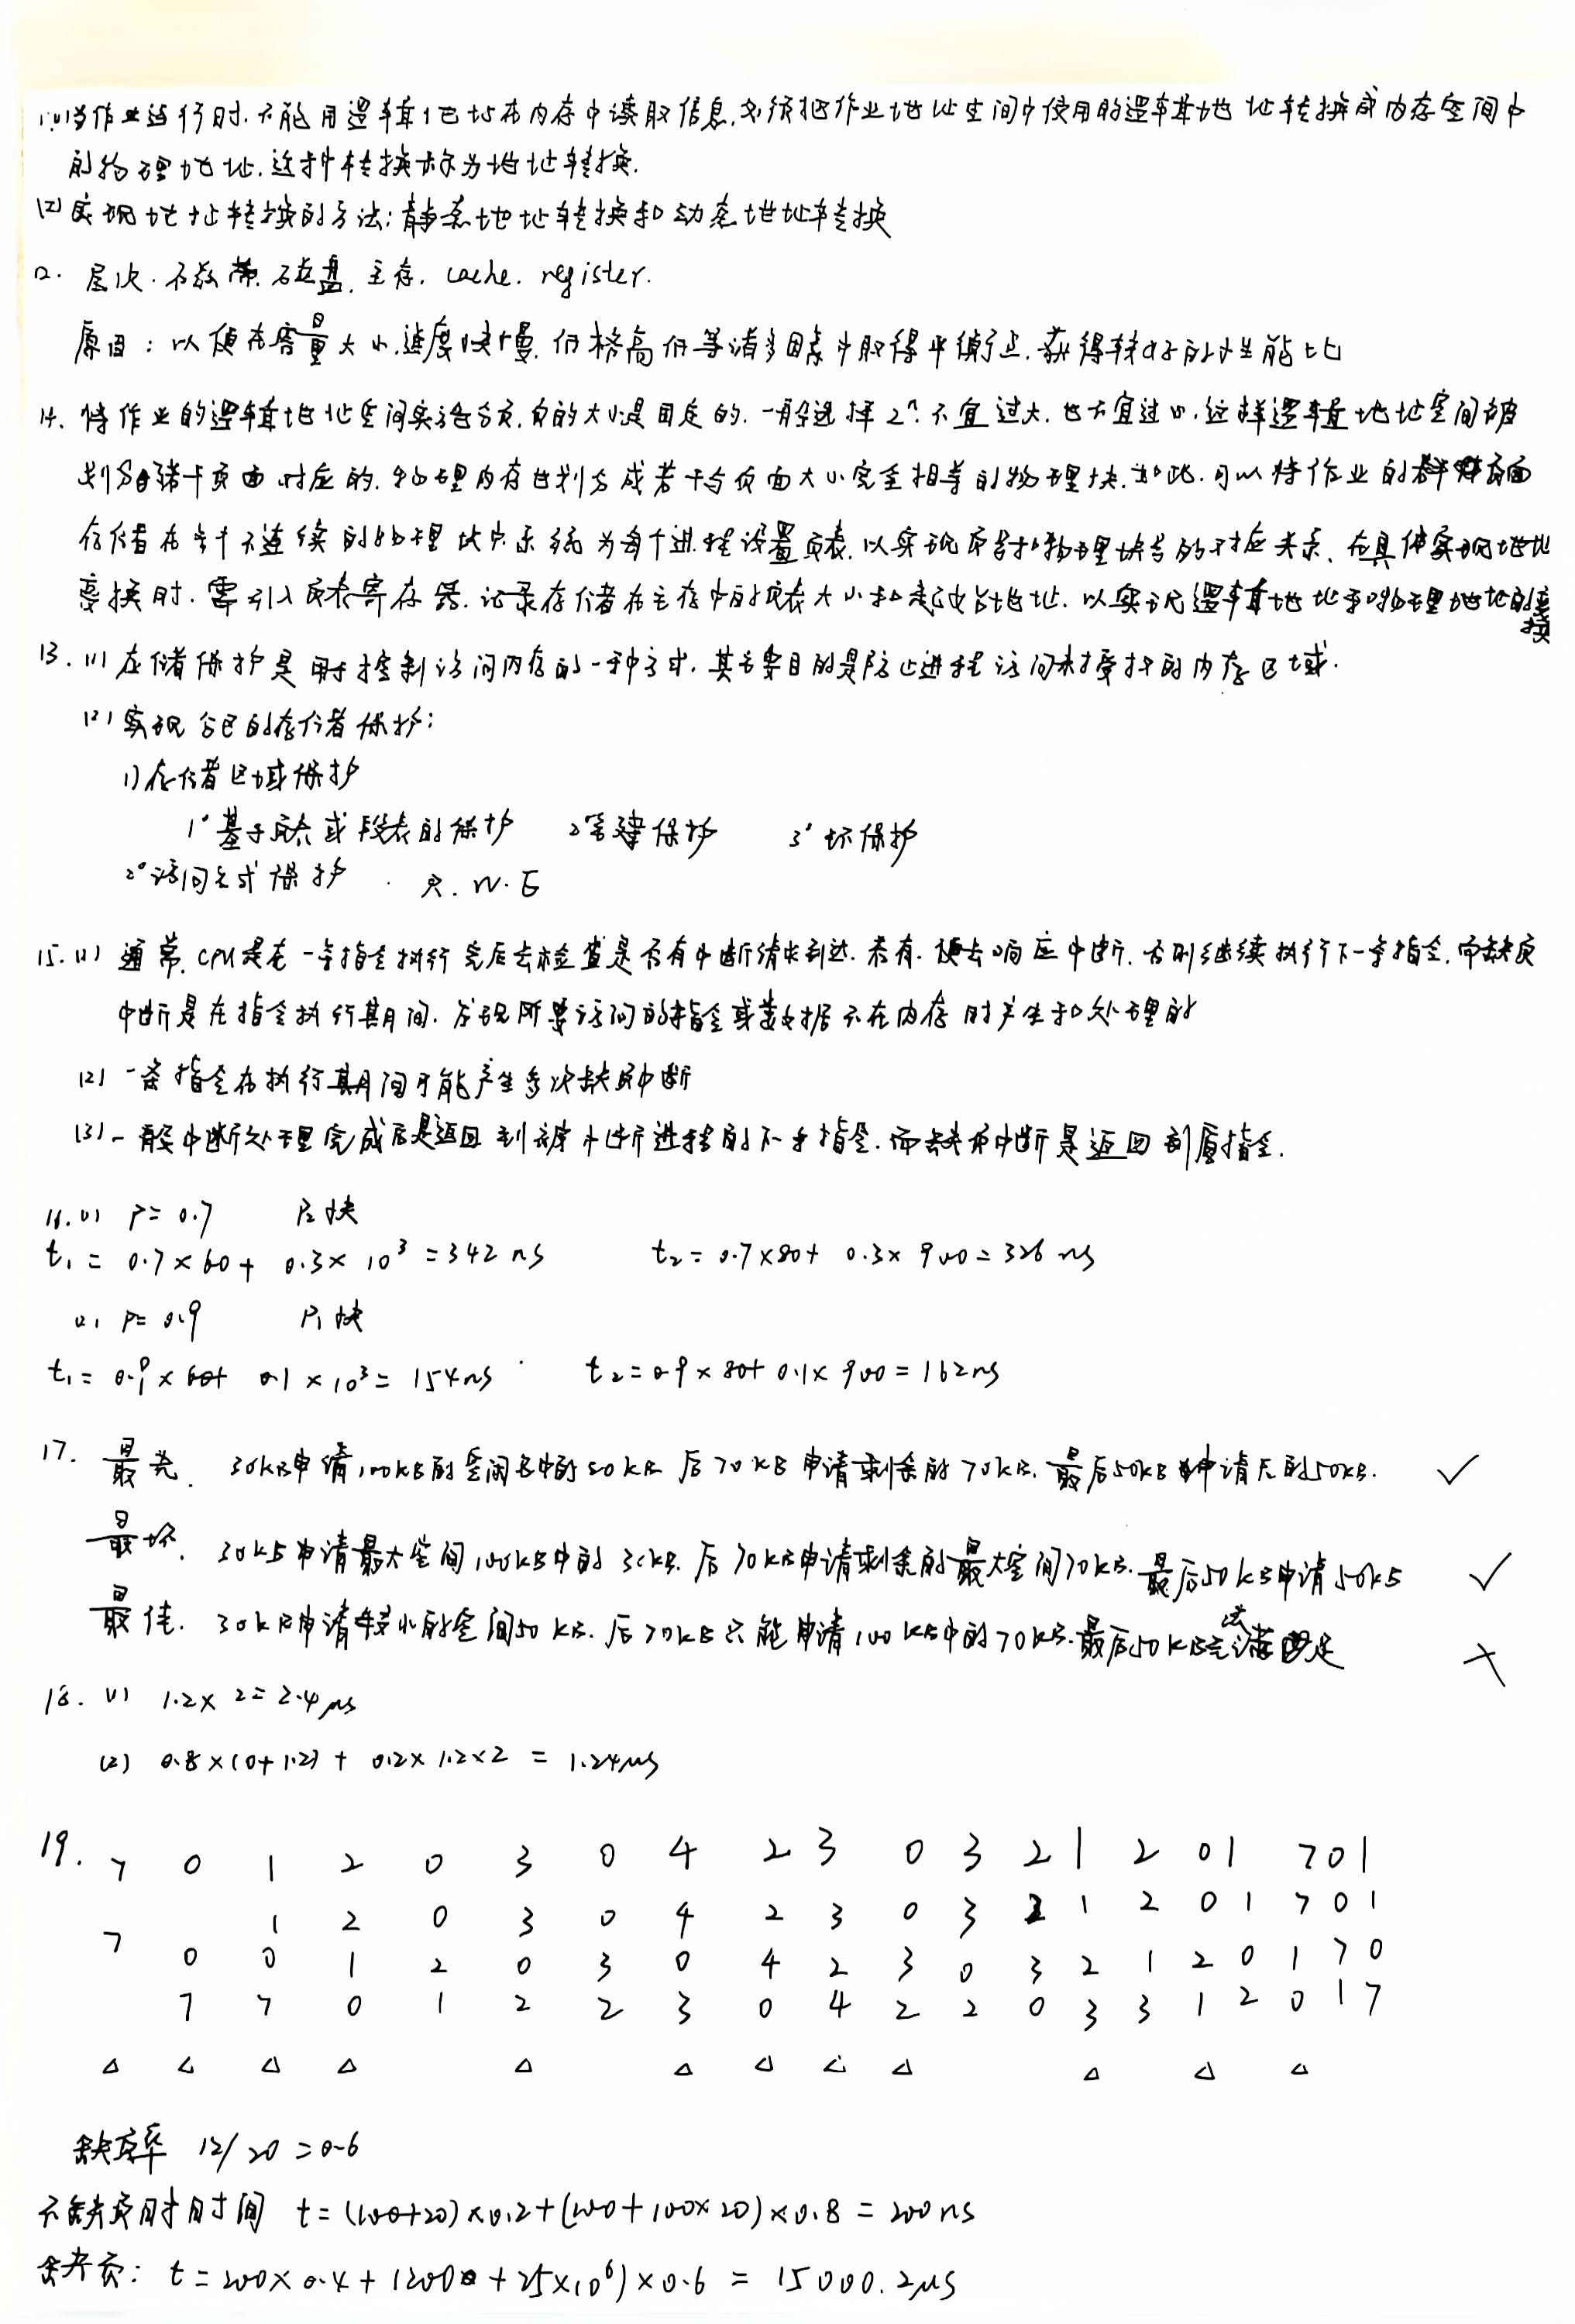 11.(1)当作业运行时.不能用逻辑地址在内存中读取信息.必须把作业地址空间中使用的逻辑地址转换成内存空间中
的物理地址.这种转换称为地址转换.
(2)实现地址转换的方法:静态地址转换和动态地址转换
12. 层次. 磁带. 磁盘. 主存. cache. register.
原因: 以便在容量大小.速度快慢.价格高低等诸多因素中取得平衡点.获得较好的性能比
14. 将作业的逻辑地址空间实施分页.页的大小是固定的.一般选择2ⁿ.不宜过大.也不宜过小.这样逻辑地址空间被
划分若干页面.对应的.物理内存也划分成若干与页面大小完全相等的物理块.如此.可以将作业的页面
存储在若干不连续的物理块中.系统为每个进程设置页表.以实现页号和物理块号的对应关系.在具体实现地址
变换时.需引入页表寄存器.记录存储在主存中的页表大小和起始地址.以实现逻辑地址和物理地址的变换
13. (1) 存储保护是用于控制访问内存的一种方式.其主要目的是防止进程访问未授权的内存区域.
(2) 实现分区的存储保护:
1) 存储区域保护
1° 基于页表或段表的保护 2° 键保护 3° 环保护
2° 访问方式保护. R. W. E
15. (1) 通常.CPU是在一条指令执行完后去检查是否有中断请求到达.若有.便去响应中断.否则继续执行下一条指令.而缺页
中断是在指令执行期间.发现所要访问的指令或数据不在内存时产生和处理的
(2) 一条指令在执行期间可能产生多次缺页中断
(3) 一般中断处理完成后是返回到被中断进程的下一条指令.而缺页中断是返回到原指令.
16. (1) P= 0.7 P₂快
t₁ = 0.7×60+ 0.3×10³ =342 ns t₂= 0.7×80+ 0.3×900= 326 ns
(2) P= 0.9 P₁快
t₁= 0.9×60+ 0.1×10³= 154ns t₂=0.9×80+ 0.1×900 = 162ns
17. 最先. 30kB申请100kB的空闲区中的30kB 后70kB申请剩余的70kB. 最后50kB申请后的50kB. ✓
最坏. 30kB申请最大空间100kB中的30kB. 后70kB申请剩余的最大空间70kB. 最后50kB申请50kB ✓
最佳. 30kB申请较小的空间50kB. 后70kB只能申请100kB中的70kB.最后50kB无法满足 ×
18. (1) 1.2×2= 2.4μs
(2) 0.8×(0+1.2) + 0.2×1.2×2 = 1.24μs
19. 7 0 1 2 0 3 0 4 2 3 0 3 2 1 2 0 1 7 0 1
7 1 2 0 3 0 4 2 3 0 3 2 1 2 0 1 7 0 1
0 0 1 2 0 3 0 4 2 3 0 3 2 1 2 0 1 7 0
7 7 0 1 2 2 3 0 4 2 2 0 3 3 1 2 0 1 7
△ △ △ △ △ △ △ △ △ △ △ △
缺页率 12/20 =0.6
不缺页时时间 t= (100+20)×0.2+(100+100×20)×0.8 = 200ns
缺页: t= 200×0.4+(200+25×10⁶)×0.6 = 15000.2μs